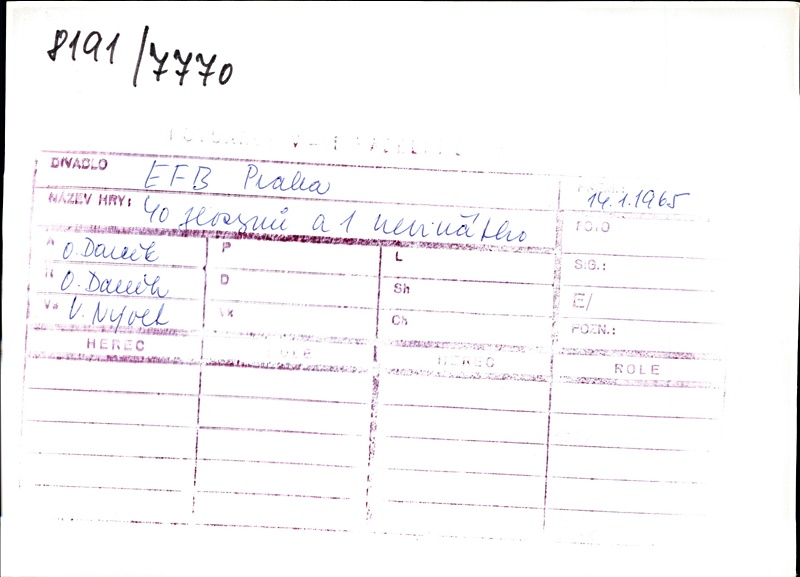 8191/7770
DIVADLO EFB Praha 14.1.1965
NÁZEV HRY: 40 zloczynů a 1 neviňátko
FOTO
A O. Daněk P L
S.G.:
R O. Daněk D Sh
E/
Vá V. Nývlt Vk Ch
POZN.:
HEREC ROLE HEREC ROLE